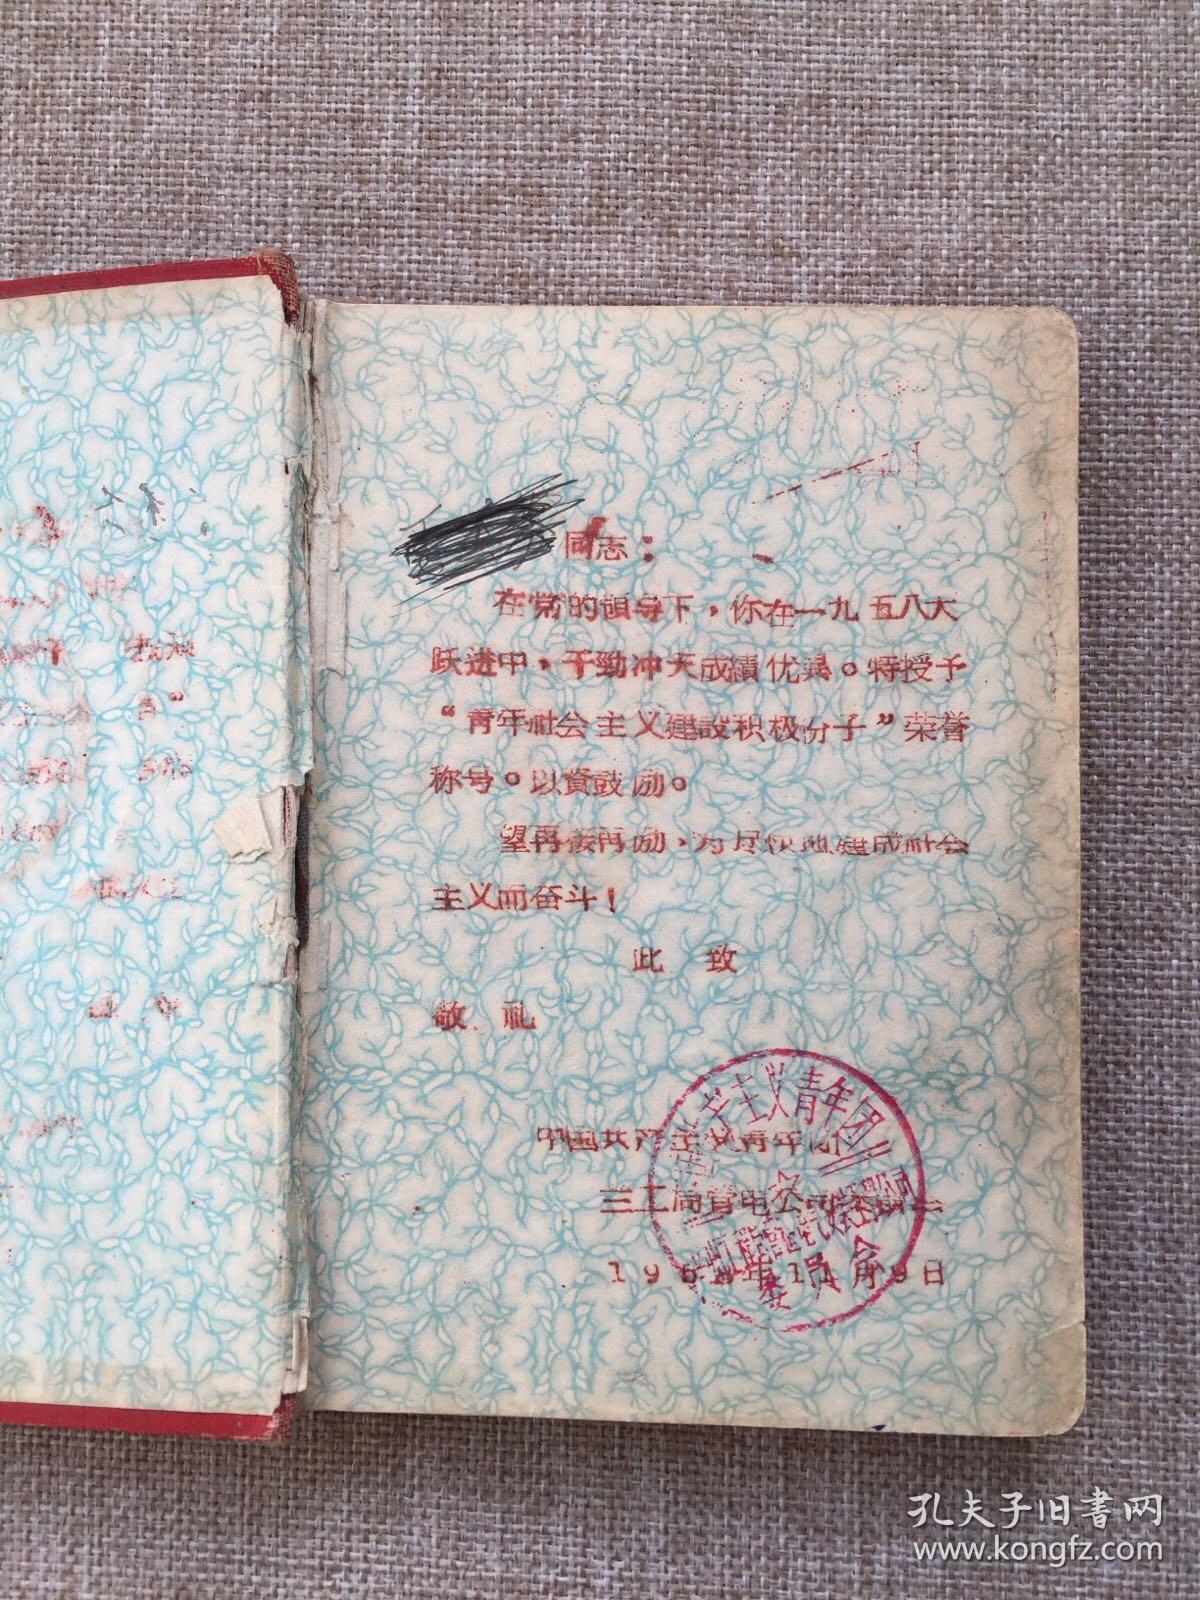 同志：
在党的領导下，你在一九五八大
跃进中，干勁冲天成績优異。特授予
“青年社会主义建設积极份子”荣誉
称号。以資鼓励。
望再接再励，为尽快地建成社会
主义而奋斗！
此 致
敬、礼
中国共产主义青年团
三工局官电公司
195 年11月9日
主义青年团
委員会
孔夫子旧書网
www.kongfz.com